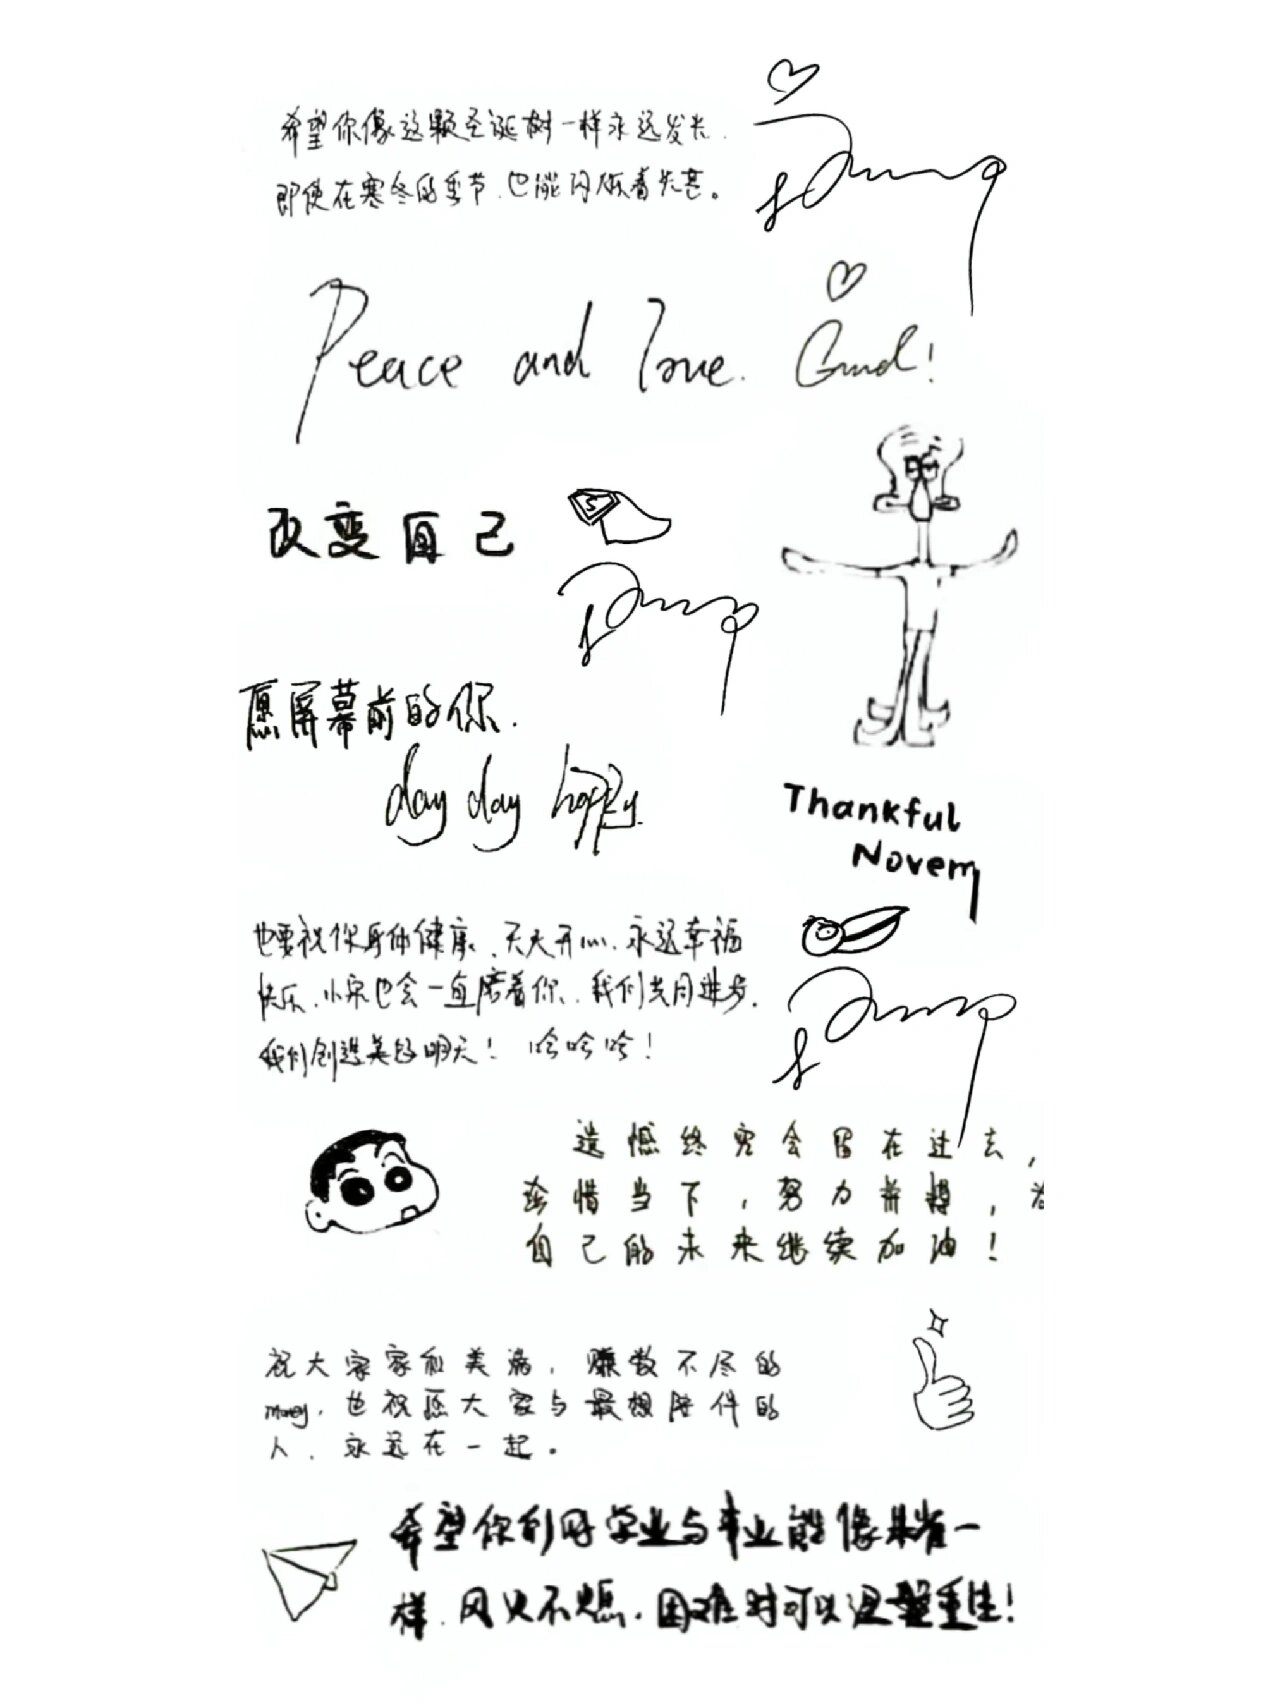 希望你像这颗圣诞树一样永远发光,
即使在寒冬的季节,也能闪烁着光芒。
Peace and love. Good!
改变自己
愿屏幕前的你,
day day happy
Thankful
Novem
也要祝你身体健康、天天开心、永远幸福
快乐、小宋也会一直陪着你、我们共同进步,
我们创造美好明天！哈哈哈！
遗憾终究会留在过去,
珍惜当下,努力拼搏,为
自己的未来继续加油！
祝大家家和美满,赚数不尽的
money,也祝愿大家与最想陪伴的
人、永远在一起。
希望你们学业与事业能像
一
样,风火不熄,困难时可以涅槃重生！